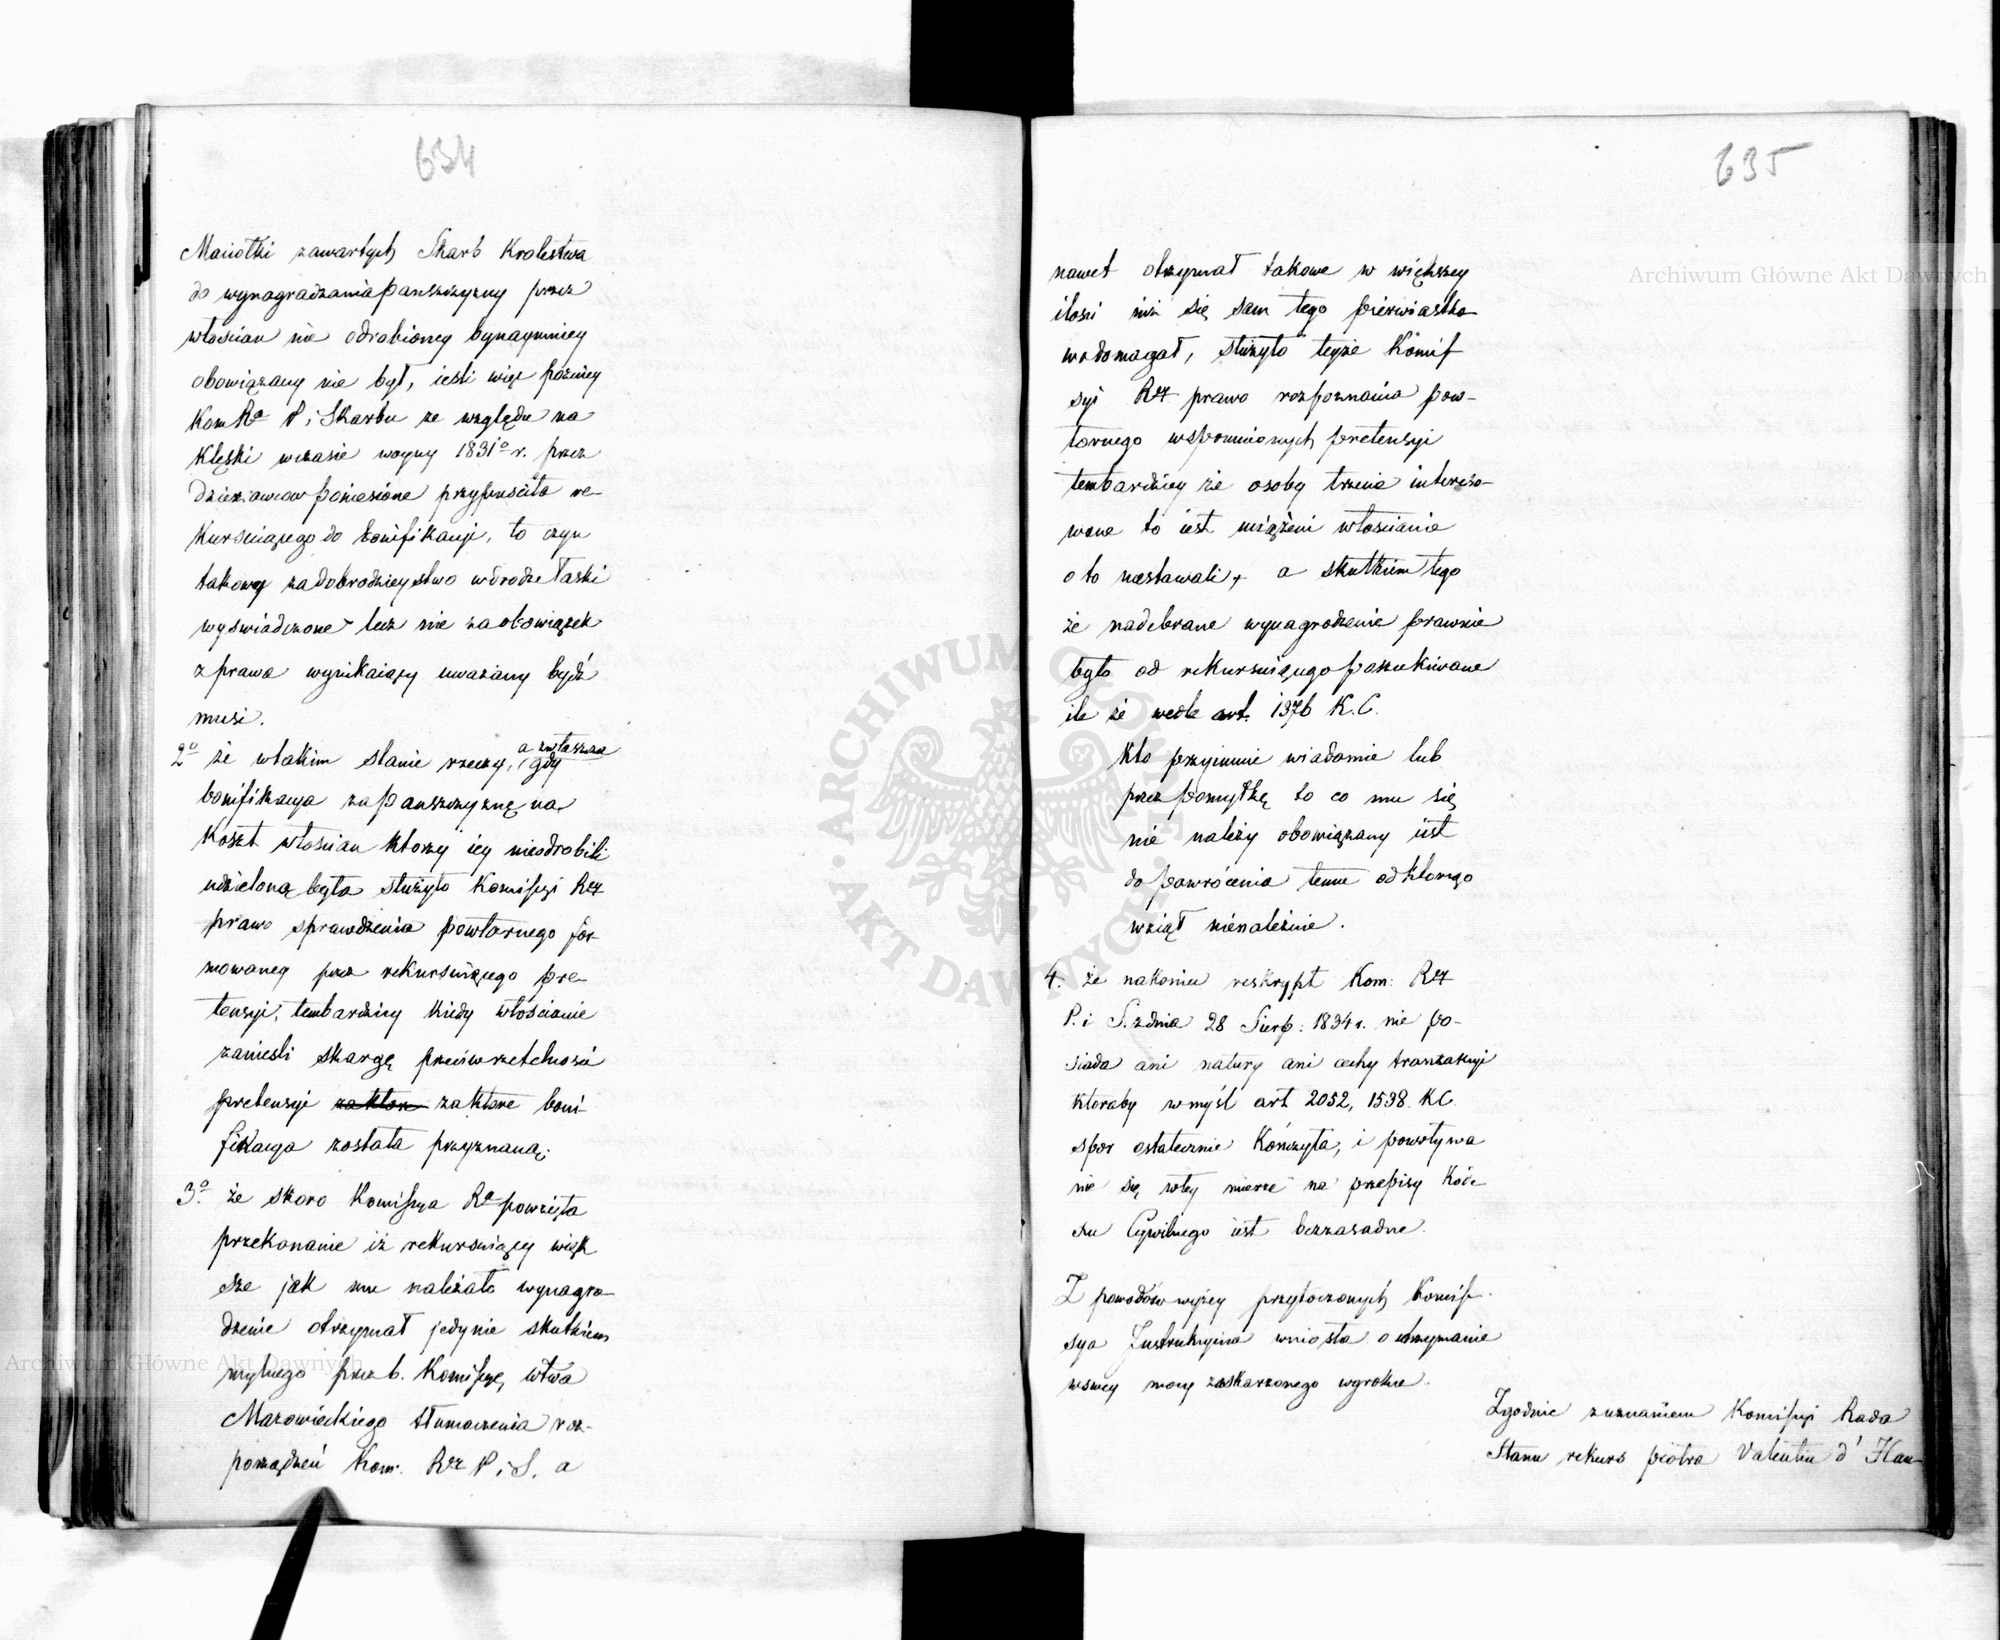 634
Maiołki zawartych Skarb Krolestwa
do wynagradzania panszczyzny przez
włoscian nie odrobioney bynaymniey
obowiązany nie był, iesli więc pozniey
Kom Ra P i Skarbu ze względu na
klęski wczasie woyny 1831o r. przez
dzierzawcow poniesione przypusciła re-
kursuiącego do bonifikacyi, to czyn
takowy za dobrodzieystwo w drodze łaski
wyswiadczone lecz nie za obowiązek
z prawa wynikaiący uwazany bydź
musi.
2o że wtakim stanie rzeczy, a zwłaszcza gdy
bonifikacya za panszczyznę na
koszt włoscian ktorzy iey nieodrobili
udzieloną była służyło Komissyi Rzz
prawo sprawdzenia powtornego for-
mowaney przez rekursuiącego pre-
tensyi, tembardziey kiedy włoscianie
zanieśli skargę przeciw rzetelnosci
pretensyi zaktor zaktore boni-
fikacya została przyznaną;
3o że skoro Komissya Ra powzięła
przekonanie iż rekursuiący więk
sze jak mu należało wynagro-
dzenie otrzymał jedynie skutkiem
mylnego przez b. Komissyę, wtwa
Mazowieckiego tłumaczenia roz-
porządzeń Kom: Rzz P. i S. a
635
nawet otrzymał takowe w większey
ilosci niż się sam tego pierwiastko
wo domagał, służyło teyże Komis
syi Rzz prawo rozpoznania pow-
tornego wspomnionych pretensyi
tembardziey że osoby trzecie intereso-
wane to iest uciążeni włoscianie
o to nastawali, a skutkiem tego
że nadebrane wynagrodzenie prawnie
było od rekursuiącego poszukiwane
ile że wedle art. 1376 K.C.
Kto przyimuie wiadomie lub
przez pomyłkę to co mu się
nie należy obowiązany iest
do powrócenia temu od ktorego
wziął nienależnie.
4. że nakoniec reskrypt Kom: Rzz
P. i S. z dnia 28 Sierp: 1834 r. nie po-
siada ani natury ani cechy tranzakcyi
ktoraby w myśl art 2052, 1538. KC.
spor ostatecznie Kończyła, i powoływa
nie się wtey mierze na przepisy Kode
xu Cywilnego iest bezzasadne.
Z powodów wyżey przytoczonych Komis-
sya Instrukcyina wniosła o utrzymanie
wswey mocy zaskarzonego wyroku.
Zgodnie z uznaniem Komissyi Rada
Stanu rekurs piotra Valentin d' Hau-
Archiwum Główne Akt Dawnych
Archiwum Główne Akt Dawnych
ARCHIWUM GŁÓWNE AKT DAWNYCH